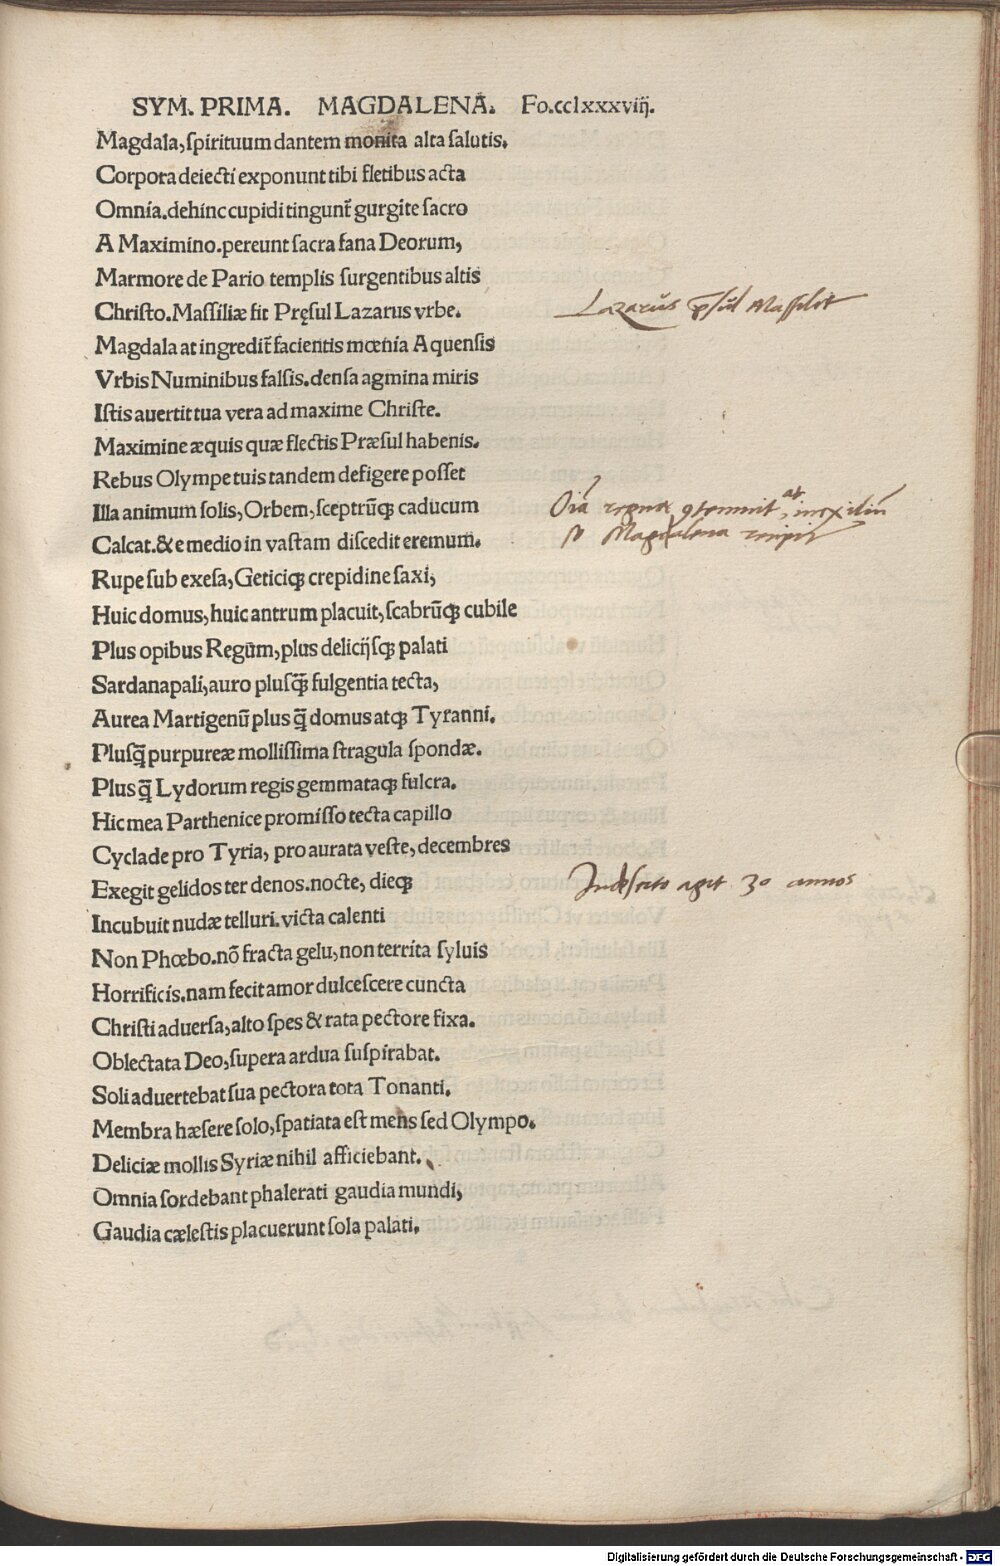 SYM. PRIMA. MAGDALENA. Fo.cclxxxviij.
Magdala, ſpirituum dantem monita alta ſalutis.
Corpora deiecti exponunt tibi fletibus acta
Omnia. dehinc cupidi tingunt᷑ gurgite ſacro
A Maximino. pereunt ſacra fana Deorum,
Marmore de Pario templis ſurgentibus altis
Chriſto. Maſſiliæ fit Pręſul Lazarus vrbe.
Lazarus p̄sul Massiliẽ
Magdala at ingredit᷑ facientis mœnia Aquenſis
Vrbis Numinibus falſis. denſa agmina miris
Iſtis auertit tua vera ad maxime Chriſte.
Maximine æquis quæ flectis Præſul habenis.
Rebus Olympe tuis tandem defigere poſſet
Illa animum ſolis, Orbem, ſceptrūqꝫ caducum
Oĩa regna ꝯtemnit, at in exiliũ
Calcat. & e medio in vaſtam diſcedit eremum.
Magdalena
Rupe ſub exeſa, Geticiqꝫ crepidine ſaxi,
Huic domus, huic antrum placuit, ſcabrūqꝫ cubile
Plus opibus Regūm, plus delicijſqꝫ palati
Sardanapali, auro pluſq̄ꝫ fulgentia tecta,
Aurea Martigenū plus q̄ꝫ domus atqꝫ Tyranni.
Pluſq̄ꝫ purpureæ molliſſima ſtragula ſpondæ.
Plus q̄ꝫ Lydorum regis gemmataqꝫ fulcra.
Hic mea Parthenice promiſſo tecta capillo
Cyclade pro Tyria, pro aurata veſte, decembres
Exegit gelidos ter denos. nocte, dieqꝫ
In deserto agit 30 annos
Incubuit nudæ telluri. victa calenti
Non Phœbo. nō fracta gelu, non territa ſyluis
Horrificis. nam fecit amor dulceſcere cuncta
Chriſti aduerſa, alto ſpes & rata pectore fixa.
Oblectata Deo, ſupera ardua ſuſpirabat.
Soli aduertebat ſua pectora tota Tonanti.
Membra hæſere ſolo, ſpatiata eſt mens ſed Olympo.
Deliciæ mollis Syriæ nihil afficiebant.
Omnia ſordebant phalerati gaudia mundi,
Gaudia cæleſtis placuerunt ſola palati.
Digitalisierung gefördert durch die Deutsche Forschungsgemeinschaft - DFG